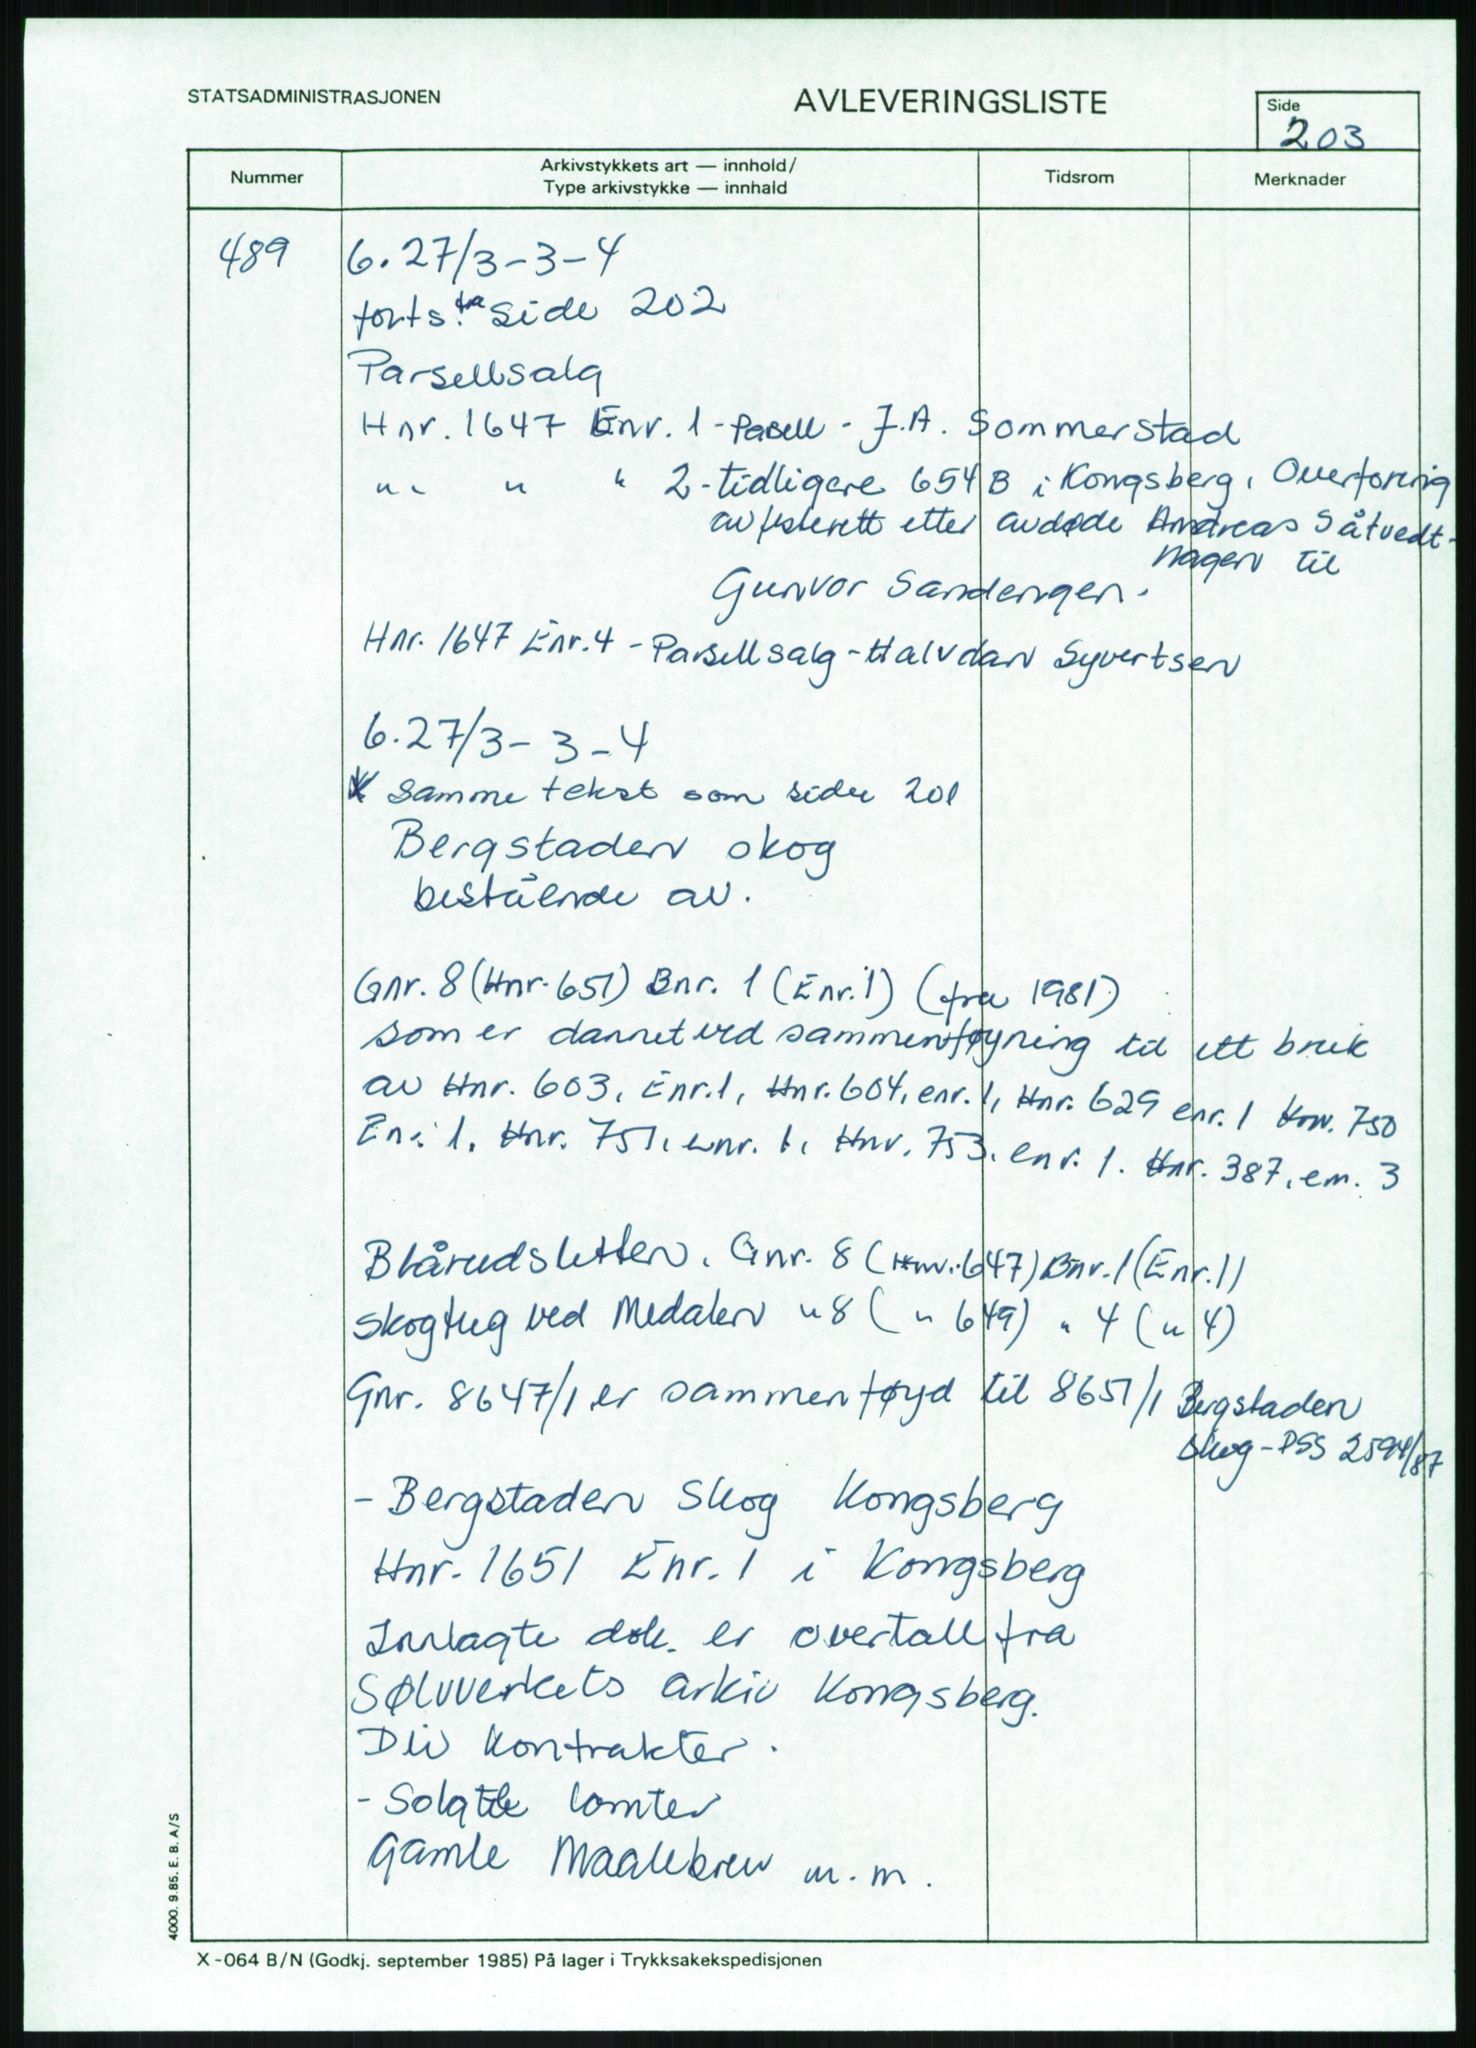 STATSADMINISTRASJONEN
AVLEVERINGSLISTE
Side
203
Nummer
Arkivstykkets art — innhold/
Type arkivstykke — innhald
Tidsrom
Merknader
489
6.27/3-3-4
forts. fra side 202
Parsellsalg
Hnr. 1647 Enr. 1 - Pasell - J.A. Sommerstad
" " " 2 - tidligere 654 B i Kongsberg, Overforing
av festerett etter avdøde Andreas Såtvedt-
hagen til
Gunvor Sandengen.
Hnr. 1647 Enr. 4 - Parsellsalg - Halvdan Syvertsen
6.27/3-3-4
samme tekst som side 201
Bergstaden skog
bestående av.
Gnr. 8 (Hnr. 651) Bnr. 1 (Enr. 1) (fra 1981)
som er dannet ved sammenføyning til ett bruk
av Hnr. 603, Enr. 1, Hnr. 604, enr. 1, Hnr. 629 enr. 1 Hnr. 750
Enr. 1, Hnr. 751, enr. 1, Hnr. 753, enr. 1. Hnr. 387, enr. 3
Blårudsletten. Gnr. 8 (Hnr. 647) Bnr. 1 (Enr. 1)
Skogteig ved Medalen " 8 ( " 649) " 4 ( " 4)
Gnr. 8647/1 er sammenføyd til 8651/1 Bergstaden
Skog - PSS 2594/87
- Bergstaden Skog Kongsberg
Hnr. 1651 Enr. 1 i Kongsberg
Innlagte dok. er overtall fra
Sølvverkets arkiv Kongsberg.
Div kontrakter.
- Solgte tomter
Gamle Maalebrev m.m.
4000. 9.85. E. B. A/S
X-064 B/N (Godkj. september 1985) På lager i Trykksakekspedisjonen